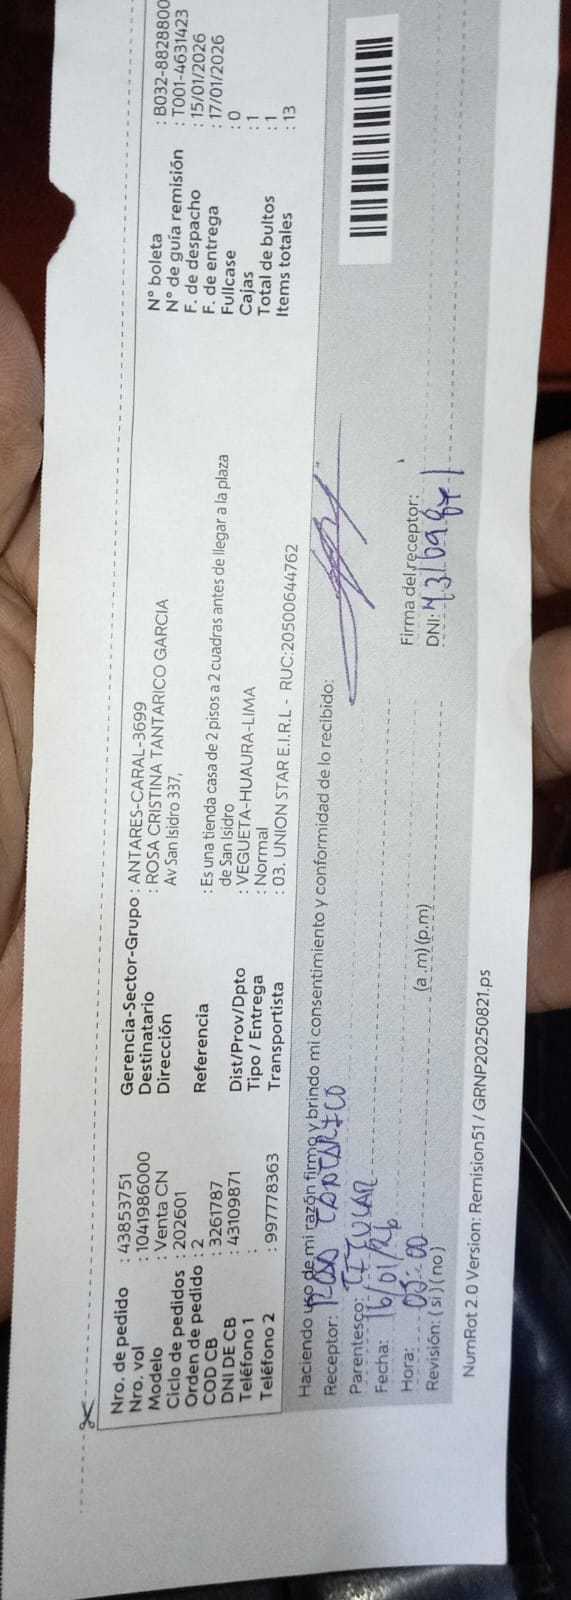 Nro. de pedido : 43853751
Nro. vol : 1041986000
Modelo : Venta CN
Ciclo de pedidos : 202601
Orden de pedido : 2
COD CB : 3261787
DNI DE CB : 43109871
Teléfono 1 :
Teléfono 2 : 997778363
Gerencia-Sector-Grupo : ANTARES-CARAL-3699
Destinatario : ROSA CRISTINA TANTARICO GARCIA
Dirección Av San Isidro 337,
Referencia : Es una tienda casa de 2 pisos a 2 cuadras antes de llegar a la plaza
de San Isidro
Dist/Prov/Dpto : VEGUETA-HUAURA-LIMA
Tipo / Entrega : Normal
Transportista : 03. UNION STAR E.I.R.L - RUC:20500644762
N° boleta : B032-8828800
N° de guía remisión : T001-4631423
F. de despacho : 15/01/2026
F. de entrega : 17/01/2026
Fullcase : 0
Cajas : 1
Total de bultos : 1
Items totales : 13
Haciendo uso de mi razón firmo y brindo mi consentimiento y conformidad de lo recibido:
Receptor: ROSA TANTARICO
Parentesco: TITULAR
Fecha: 16/01/26
Hora: 03:00 (a .m) (p.m)
Revisión: ( si ) ( no )
Firma del receptor:
DNI:
NumRot 2.0 Version: Remision51 / GRNP20250821.ps